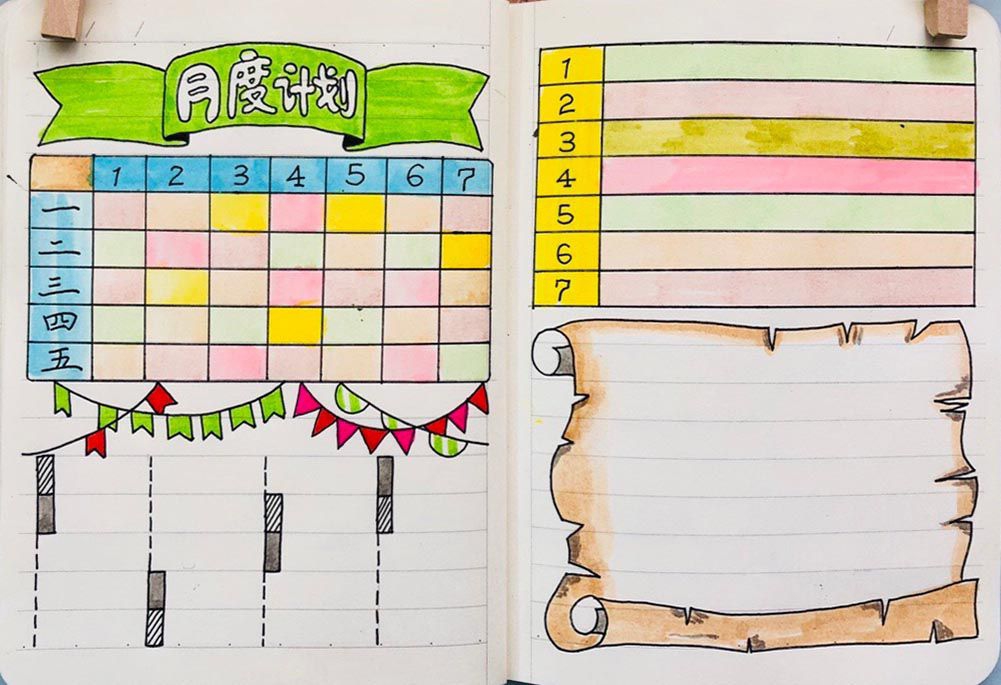 月度计划
1 2 3 4 5 6 7
一
二
三
四
五
1
2
3
4
5
6
7